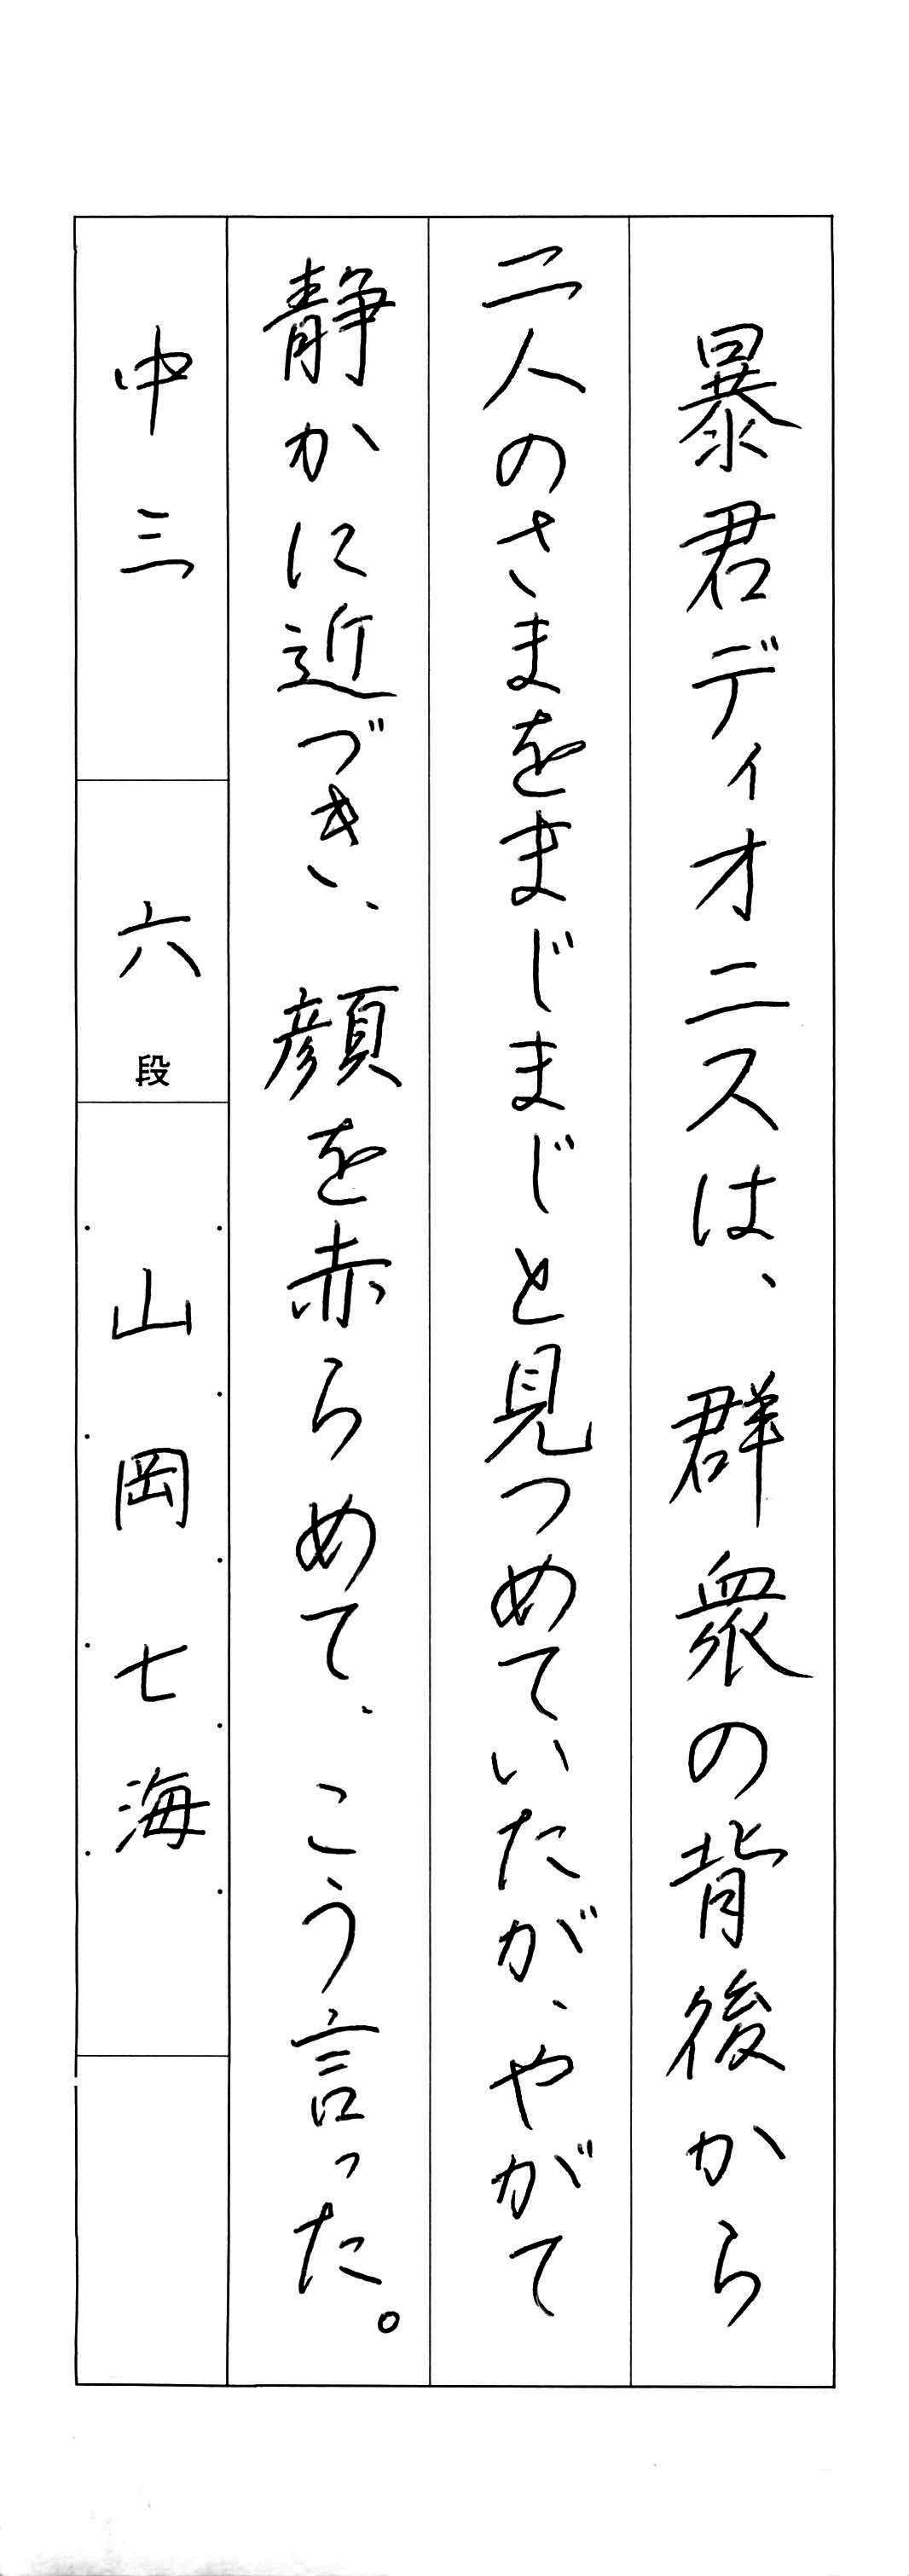 暴君ディオニスは、群衆の背後から
二人のさまをまじまじと見つめていたが、やがて
静かに近づき、顔を赤らめて、こう言った。
中三 六段 山岡七海